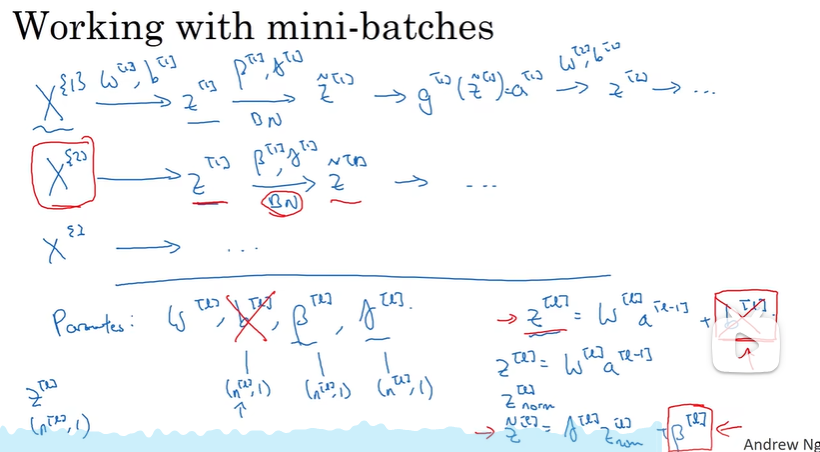 Working with mini-batches
X^{1} W^[1], b^[1] → z^[1] β^[1], γ^[1] → BN z̃^[1] → g^[1](z̃^[1]) = a^[1] W^[2], b^[2] → z^[2] → ...
X^{2} → z^[1] β^[1], γ^[1] → BN z̃^[1] → ...
X^{ → ...
Parameters: W^[l], b^[l], β^[l], γ^[l].
(n^[l], 1) (n^[l], 1) (n^[l], 1)
z^[l]
(n^[l], 1)
→ z^[l] = W^[l] a^[l-1] + b^[l].
z^[l] = W^[l] a^[l-1]
z^[l]_norm
→ z̃^[l] = γ^[l] z^[l]_norm + β^[l] ←
Andrew Ng